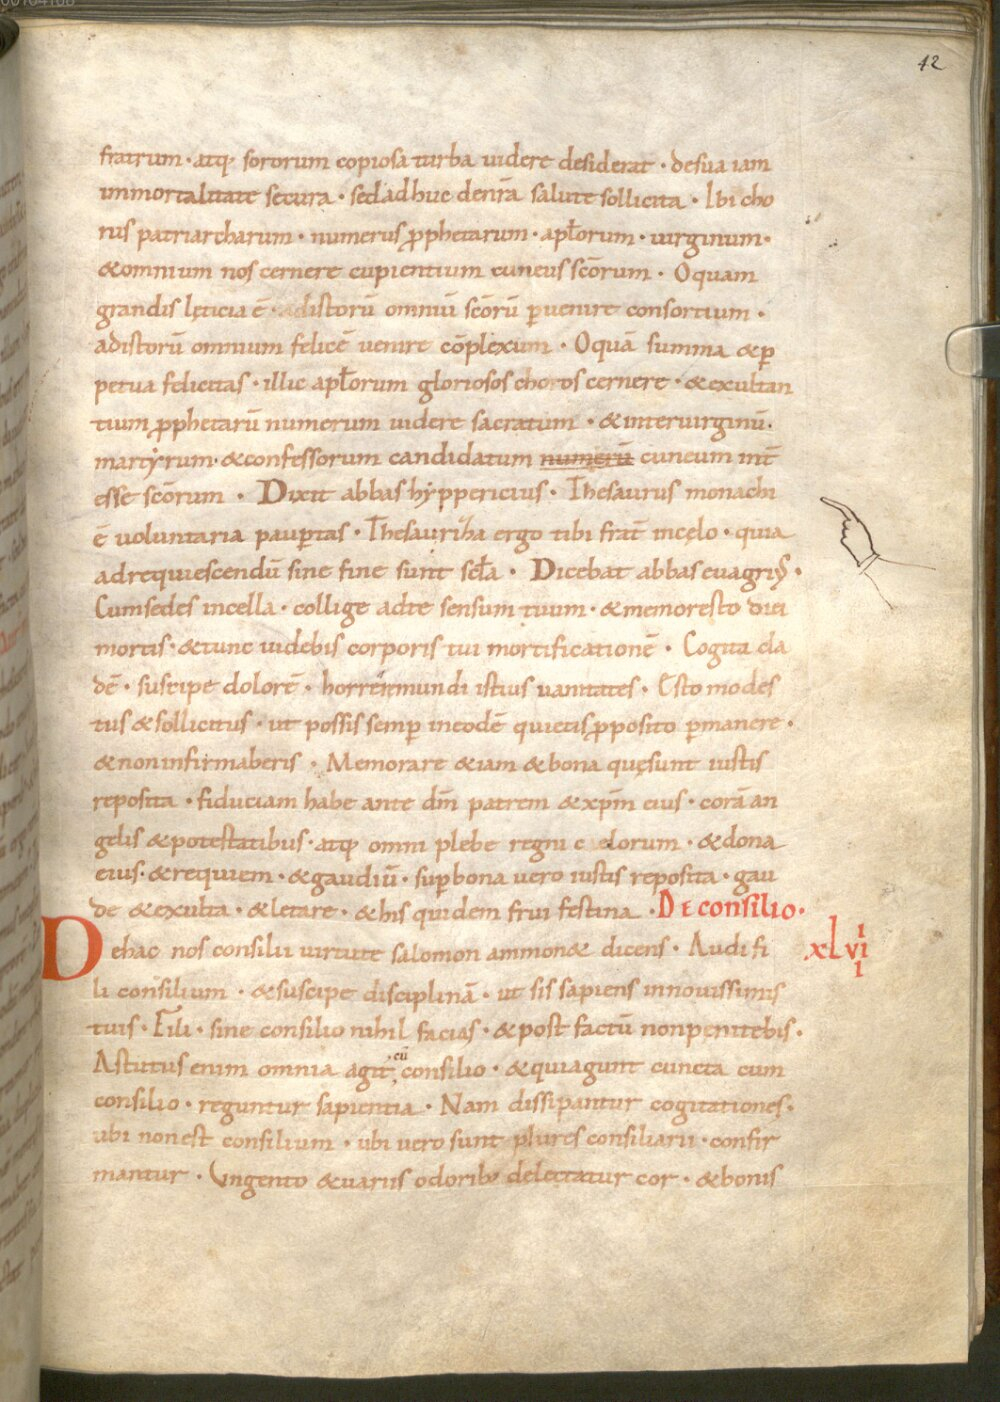 42
fratrum · atq; sororum copiosa turba uidere desiderat · desua iam
immortalitate secura · sed adhuc de nr̄a salute sollicita · Ibi cho
rus patriarcharum · numerus ꝓphetarum · apl̄orum · uirginum ·
& omnium nos cernere cupientium cuneus sc̄orum · O quam
grandis lęticia ē · adistorū omniū sc̄orū ꝑuenire consortium ·
adistorū omnium felicē uenire cōplexum · O quā summa & ꝑ
petua felicitas · illic apl̄orum gloriosos choros cernere · & exultan
tium ꝓphetarū numerum uidere sacratum · & inter uirginū ·
martyrum · & confessorum candidatum numerū cuneum int̄
esse sc̄orum · Dixit abbas hyppericius · Thesaurus monachi
ē uoluntaria pauꝑtas · Thesauriza ergo tibi frat̄ in cęlo · quia
ad requiescendū sine fine sunt sc̄la · Dicebat abbas euagriꝰ ·
Cum sedes in cella · collige ad te sensum tuum · & memor esto diei
mortis · & tunc uidebis corporis tui mortificationē · Cogita cla
dē · suscipe dolorē · horre mundi istius uanitates · Esto modes
tus & sollicitus · ut possis semꝑ in eodē quietis ꝓposito ꝑmanere ·
& non infirmaberis · Memorare & iam & bona quę sunt iustis
reposita · fiduciam habe ante dm̄ patrem & xp̄m eius · corā an
gelis & potestatibus · atq; omni plebe regni c elorum · & dona
eius · & requiem · & gaudiū · suꝑ bona uero iustis reposita · gau
de & exulta · & letare · & his quidem frui festina · De consilio ·
De hac nos consilii uirtute salomon ammon& dicens · Audi fi xlvııı
li consilium · & suscipe disciplinā · ut sis sapiens in nouissimis
tuis · Fili · sine consilio nihil facias · & post factū non penitebis ·
Astutus enim omnia agit cū consilio · & qui agunt cuncta cum
consilio · reguntur sapientia · Nam dissipantur cogitationes ·
ubi non est consilium · ubi uero sunt plures consiliarii · confir
mantur · Ungento & uariis odorib; delectatur cor · & bonis